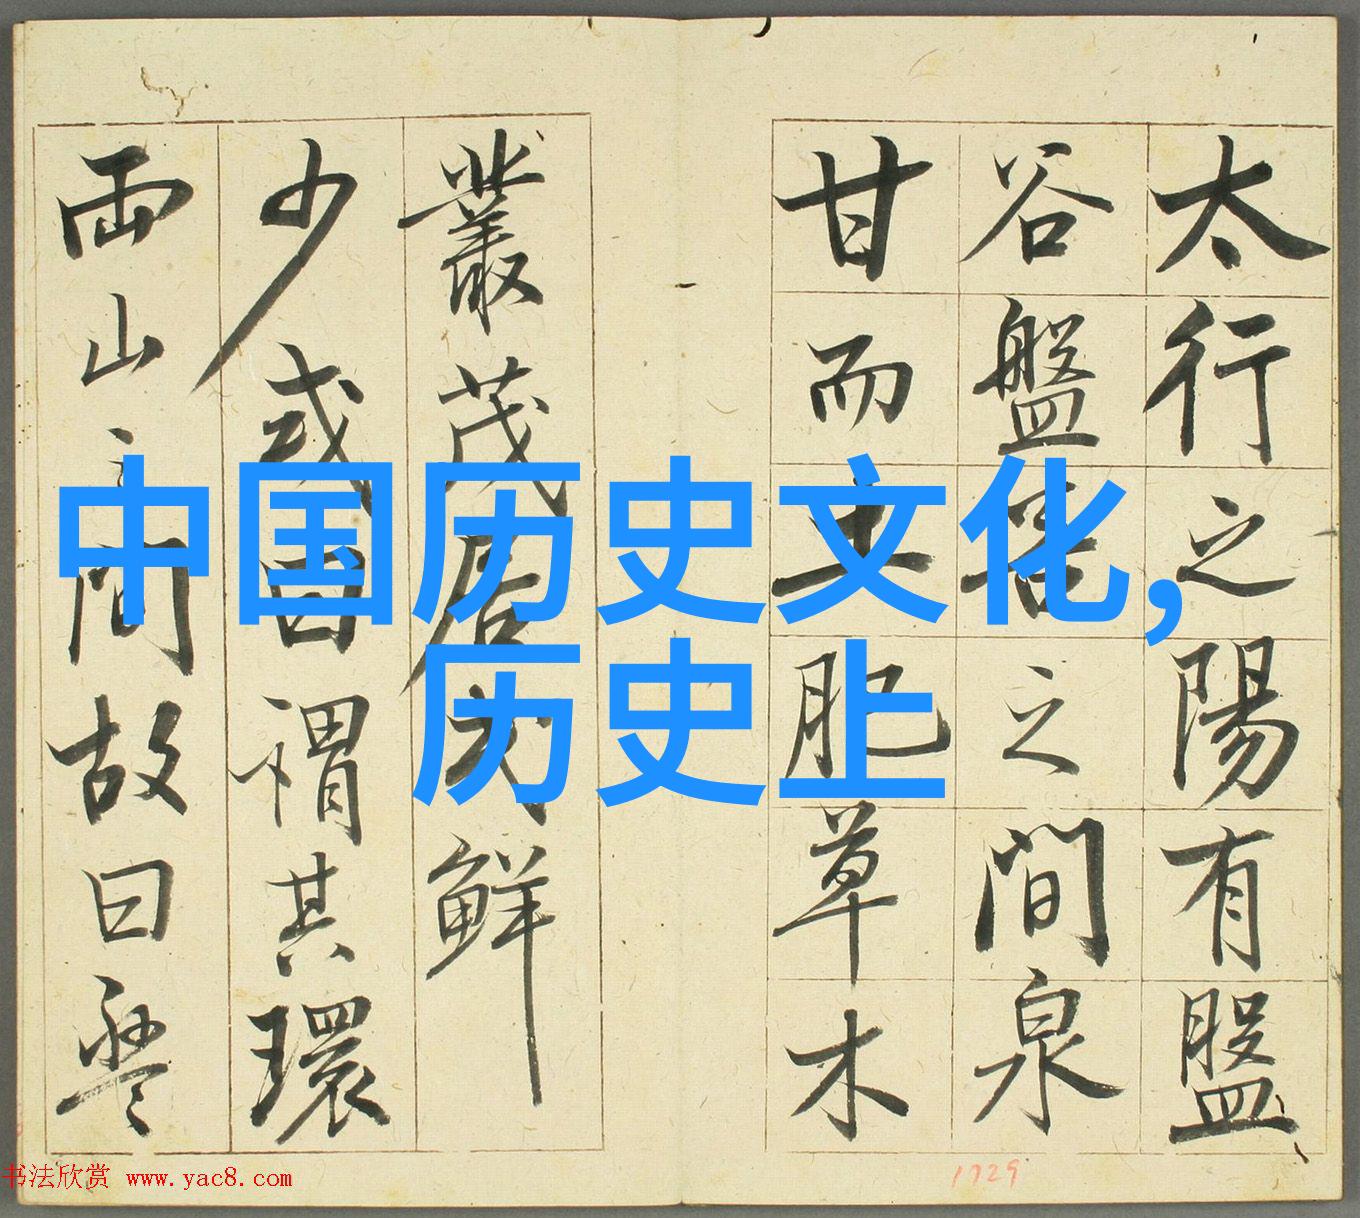 太行之陽有盤
谷盤谷之間泉
甘而土肥草木
叢茂居民鮮
少或曰謂其環
兩山之間故曰盤
中国历史文化,
历史上
书法欣赏 www.yac8.com
1729